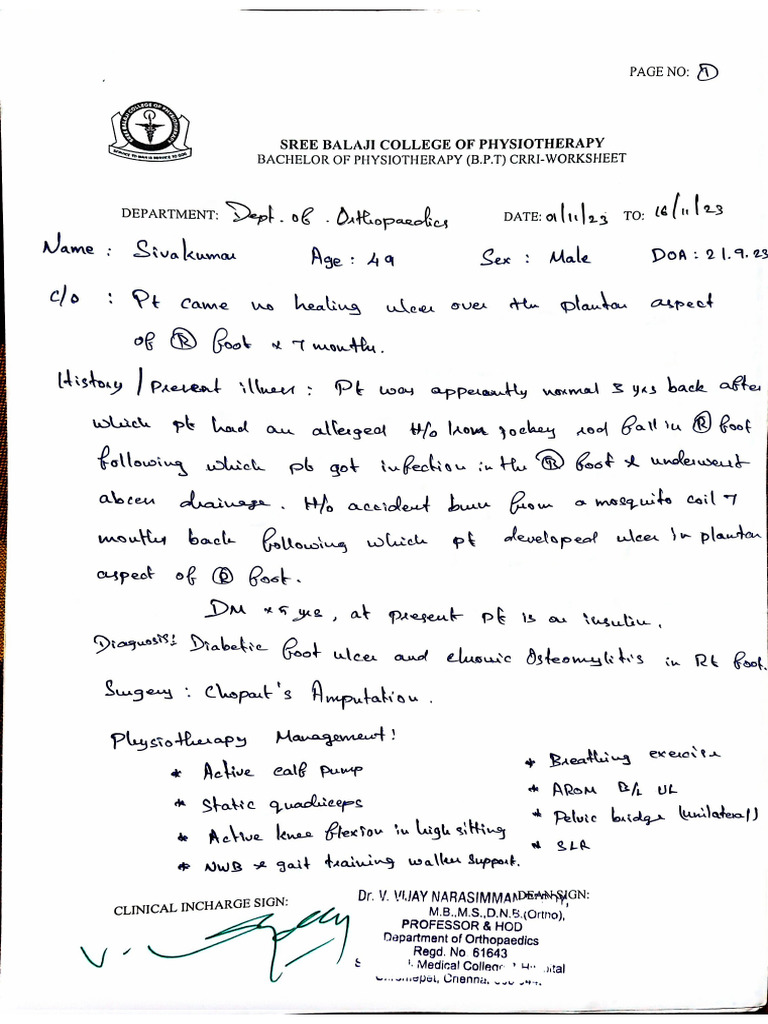 PAGE NO: 1
SREE BALAJI COLLEGE OF PHYSIOTHERAPY
BACHELOR OF PHYSIOTHERAPY (B.P.T) CRRI-WORKSHEET
DEPARTMENT: Dept. of. Orthopaedics DATE: 01/11/23 TO: 16/11/23
Name : Sivakumar Age : 49 Sex : Male DOA : 21.9.23
C/O : Pt came no healing ulcer over the plantar aspect
of (R) foot x 7 months.
History / Present illness : Pt was apperently normal 3 yrs back after
which pt had an allerged H/o Iron jockey rod fall in (R) foot
following which pt got infection in the (R) foot & underwent
abcess drainage. H/o accident burn from a mosquito coil 7
months back following which pt developed ulcer in plantar
aspect of (R) foot.
DM x 5 yrs, at present pt is on insulin.
Diagnosis: Diabetic foot ulcer and chronic Osteomylitis in Rt foot.
Surgery : Chopart's Amputation.
Physiotherapy Management:
* Active calf pump
* Static quadriceps
* Active knee flexion in high sitting
* NWB & gait training walker support.
* Breathing exercise
* AROM B/L UL
* Pelvic bridge (unilateral)
* SLR
CLINICAL INCHARGE SIGN:
DEAN SIGN:
Dr. V. VIJAY NARASIMMAN
M.B.,M.S.,D.N.B.(Ortho),
PROFESSOR & HOD
Department of Orthopaedics
Regd. No 61643
Medical College